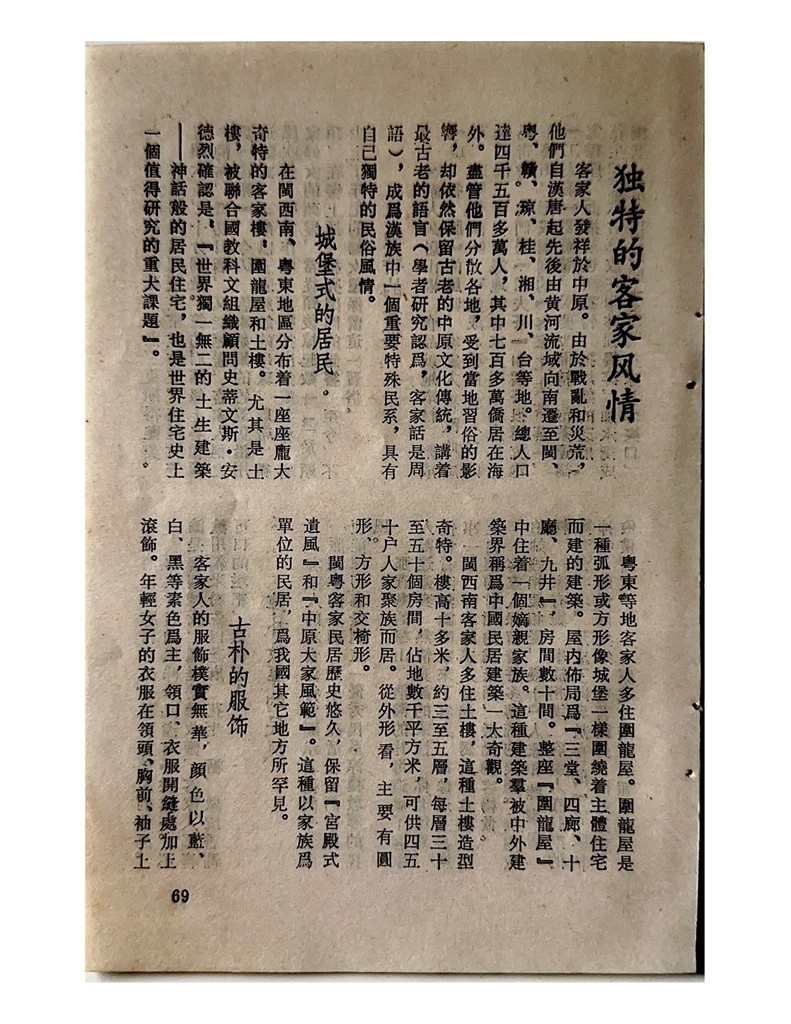 独特的客家风情
客家人發祥於中原。由於戰亂和災荒，
他們自漢唐起先後由黄河流域向南遷至閩、
粤、贛、琼、桂、湘、川、台等地。總人口
達四千五百多萬人，其中七百多萬僑居在海
外。盡管他們分散各地，受到當地習俗的影
響，却依然保留古老的中原文化傳統，講着
最古老的語言（學者研究認爲，客家話是周
語），成爲漢族中一個重要特殊民系，具有
自己獨特的民俗風情。
城堡式的居民
在閩西南、粤東地區分布着一座座龐大
奇特的客家樓：圍龍屋和土樓。尤其是土
樓，被聯合國教科文組織顧問史蒂文斯·安
德烈確認是：『世界獨一無二的土生建築
——神話般的居民住宅，也是世界住宅史上
一個值得研究的重大課題』。
粤東等地客家人多住圍龍屋。圍龍屋是
一種弧形或方形像城堡一樣圍繞着主體住宅
而建的建築。屋内佈局爲『三堂、四廊、十
廳、九井』，房間數十間。整座『圍龍屋』
中住着一個嫡親家族。這種建築羣被中外建
築界稱爲中國民居建築一大奇觀。
閩西南客家人多住土樓，這種土樓造型
奇特。樓高十多米，約三至五層，每層三十
至五十個房間，佔地數千平方米，可供四五
十户人家聚族而居。從外形看，主要有圓
形、方形和交椅形。
閩粤客家民居歷史悠久，保留『宫殿式
遺風』和『中原大家風範』。這種以家族爲
單位的民居，爲我國其它地方所罕見。
古朴的服饰
客家人的服飾樸實無華，顔色以藍、
白、黑等素色爲主，領口、衣服開縫處加上
滚飾。年輕女子的衣服在領頭、胸前、袖子上
69